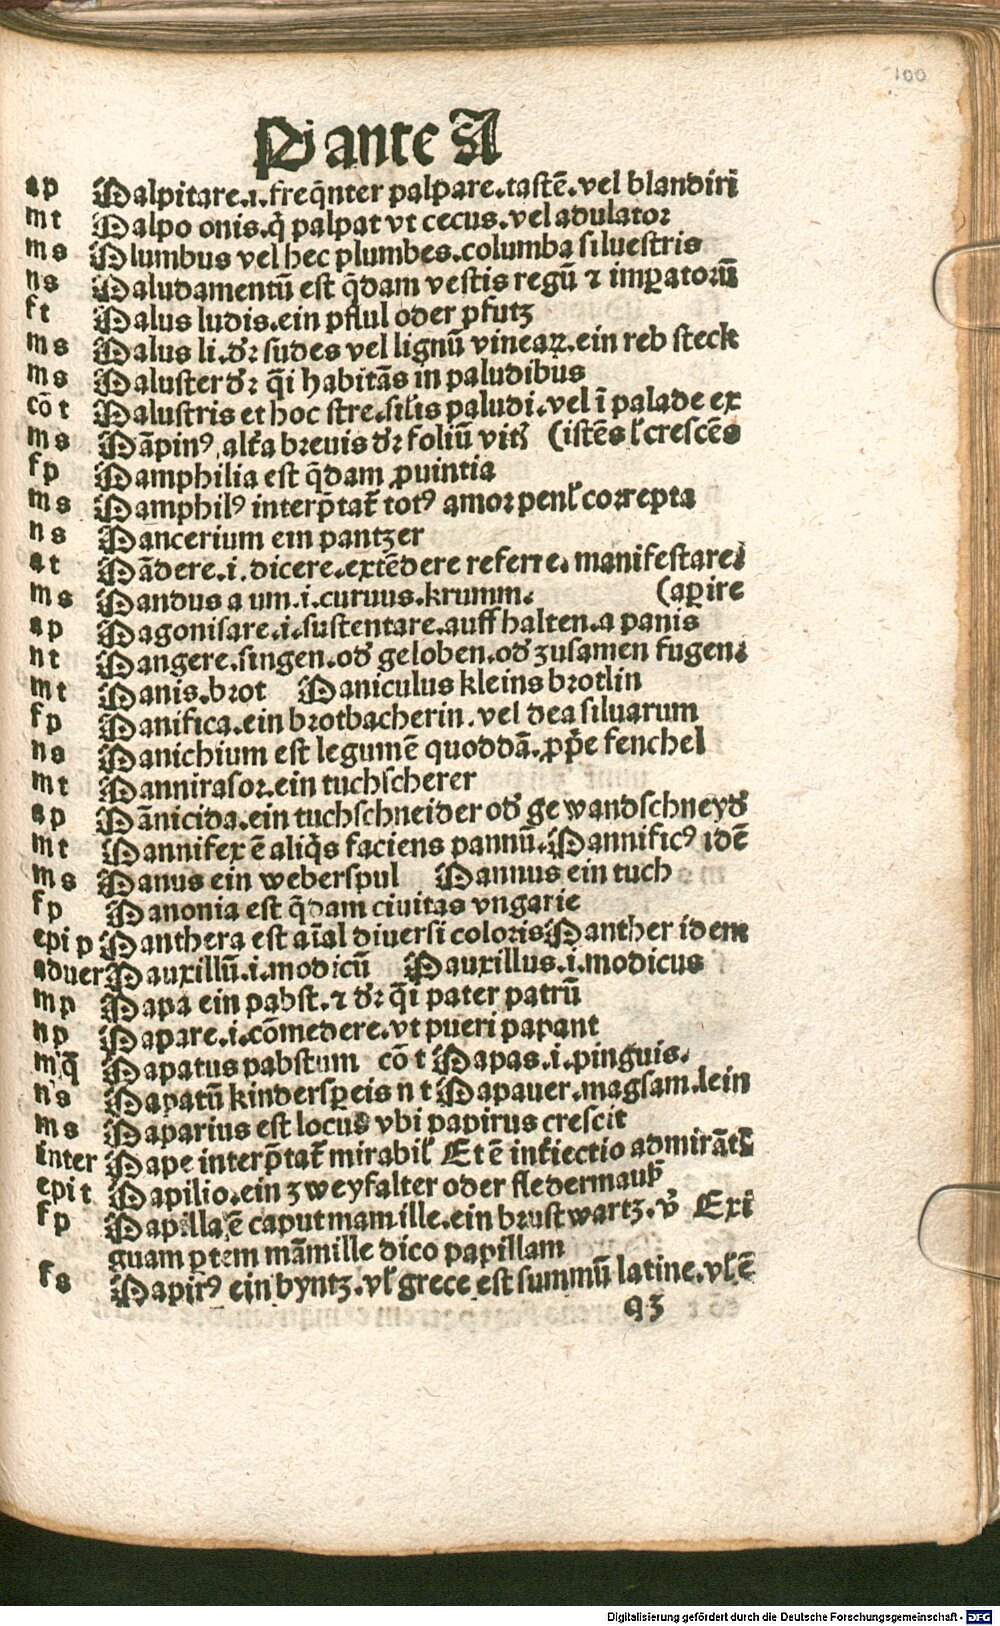 100
P ante A
ap Palpitare.i.freq̄nter palpare.tastē.vel blandiri
mt Palpo onis.q̇ palpat vt cecus.vel adulator
ms Plumbus vel hec plumbes.columba siluestris
ns Paludamentū est q̄dam vestis regū ⁊ imꝑatorū
ft Palus ludis.ein pflul oder pfutz
ms Palus li.dr̄ sudes vel lignū vineaꝝ.ein reb steck
ms Paluster dr̄ q̄i habitās in paludibus
cō t Palustris et hoc stre.sil'is paludi.vel ī palade ex
ms Pāpinꝰ alt'a breuis dr̄ foliū vit' (istēs l' crescēs
fp Pamphilia est q̄dam ꝓuintia
ms Pamphilꝰ interp̄tat' totꝰ amor penl' correpta
ns Pancerium ein pantzer
at Pādere.i.dicere.extēdere referre.manifestare.
ms Pandus a um.i.curuus.krumm. (aꝑire
ap Pagonisare.i.sustentare.auff halten.a panis
nt Pangere.singen.od' geloben.od' zusamen fugen.
mt Panis.brot Paniculus kleins brotlin
fp Panifica.ein brotbacherin.vel dea siluarum
ns Panichium est legumē quoddā.ꝓp̄e fenchel
mt Pannirasor.ein tuchscherer
ap Pānicida.ein tuchschneider od' ge wandschneyd'
mt Pannifex ē aliq̇s faciens pannū.Pannificꝰ idē
ms Panus ein weberspul Pannus ein tuch
fp Panonia est q̄dam ciuitas vngarie
epi p Panthera est aīal diuersi coloris Panther idem
aduer Pauxillū.i.modicū Pauxillus.i.modicus
mp Papa ein pabst.⁊ dr̄ q̄i pater patrū
np Papare.i.cōmedere.vt pueri papant
m q̄ Papatus pabstum cō t Papas.i.pinguis.
ns Papatū kinderspeis n t Papauer.magsam.lein
ms Paparius est locus vbi papirus crescit
inter Pape interp̄tat' mirabil' Et ē int'iectio admirāt'
epi t Papilio.ein zweyfalter oder fledermauß
fp Papilla ē caput mamille.ein brustwartz.v' Exi
guam ꝑtem māmille dico papillam
fs Papirꝰ ein byntz.vl' grece est summū latine.vl' ē
q3
Digitalisierung gefördert durch die Deutsche Forschungsgemeinschaft - DFG